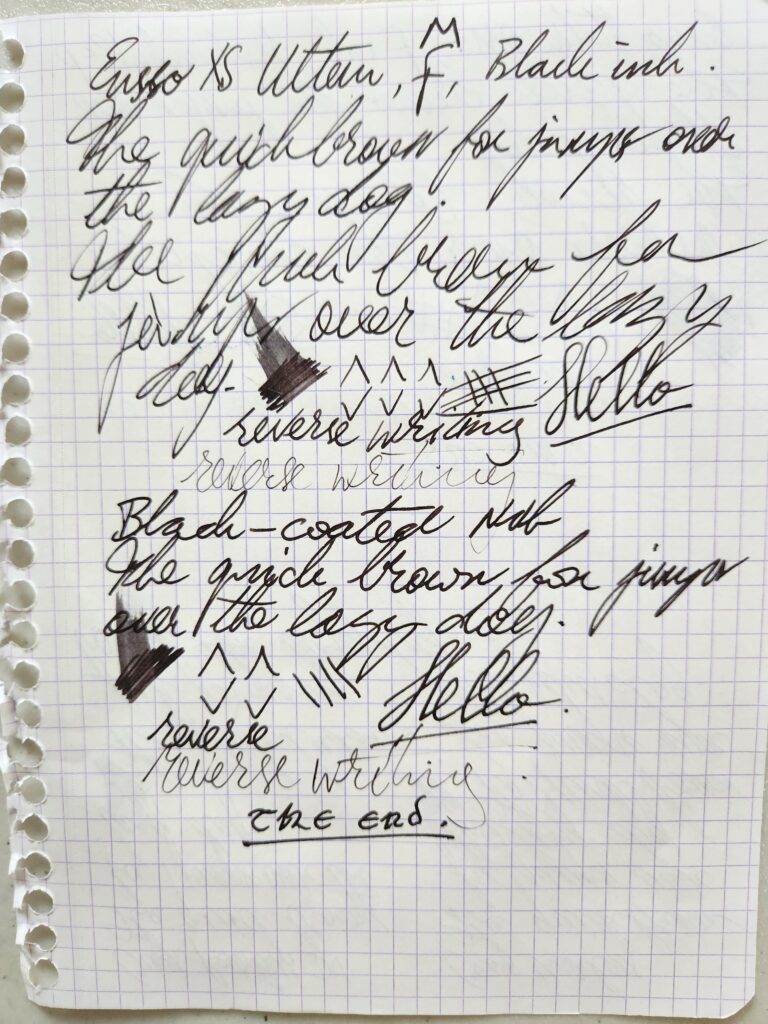 Ensso XS Ultem, F, M Black ink.
The quick brown fox jumps over
the lazy dog.
The quick brown fox
jumps over the lazy
dog.
Hello
reverse writing
reverse writing
Black-coated Nib
The quick brown fox jumps
over the lazy dog.
Hello.
reverse
reverse writing.
The End.